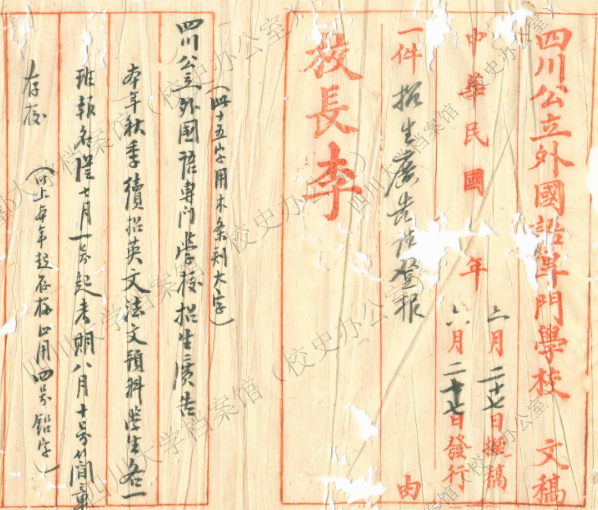 四川公立外國語專門學校 文稿
中華民國 年 六月二十七日擬稿
六月二十七日發行
一件 招生廣告請登報 由
校長李
(此十五字用木条刻大字)
四川公立外國語專門學校招生廣告
本年秋季續招英文法文預科學生各一
班報名從七月一号起考期八月十号簡章
存校
(以上本年起存校止用四号鉛字)
四川大学档案馆(校史办公室)